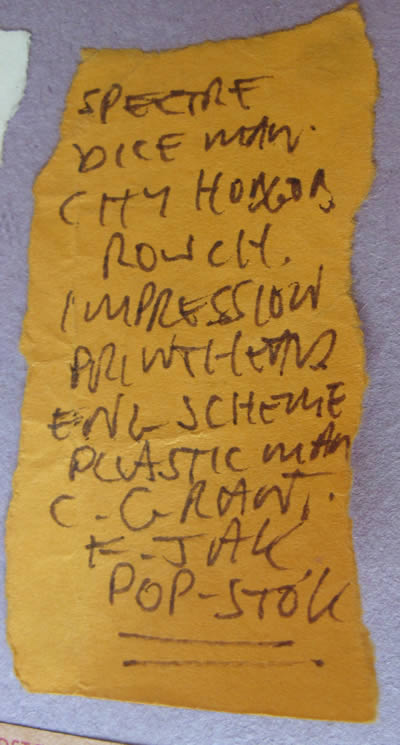 SPECTRE
DICE MAN.
CITY HOBGOB
ROWCH.
IMPRESSION
PRINTHEAD
ENG SCHEME
PLASTIC MAN
C. GRANT.
F-JAK
POP-STOK